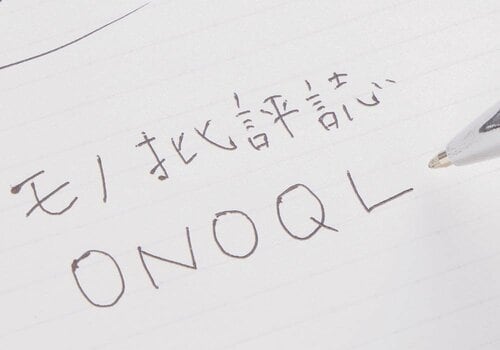 モノ批評誌
ONOQL